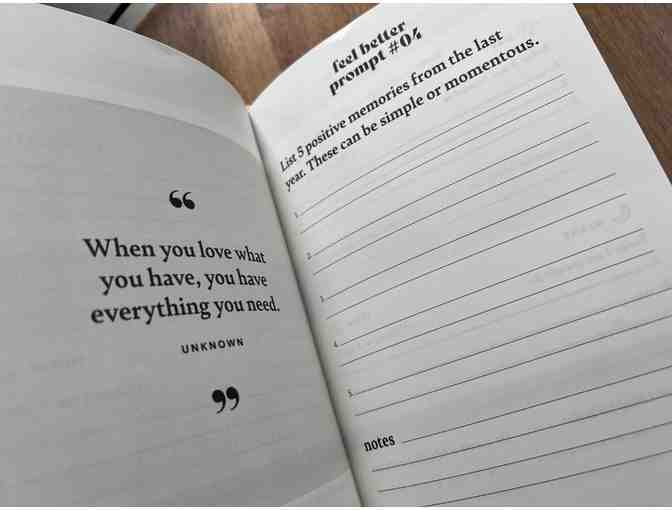 “
When you love what
you have, you have
everything you need.
UNKNOWN
”
feel better
prompt #04
List 5 positive memories from the last
year. These can be simple or momentous.
1.
2.
3.
4.
5.
notes